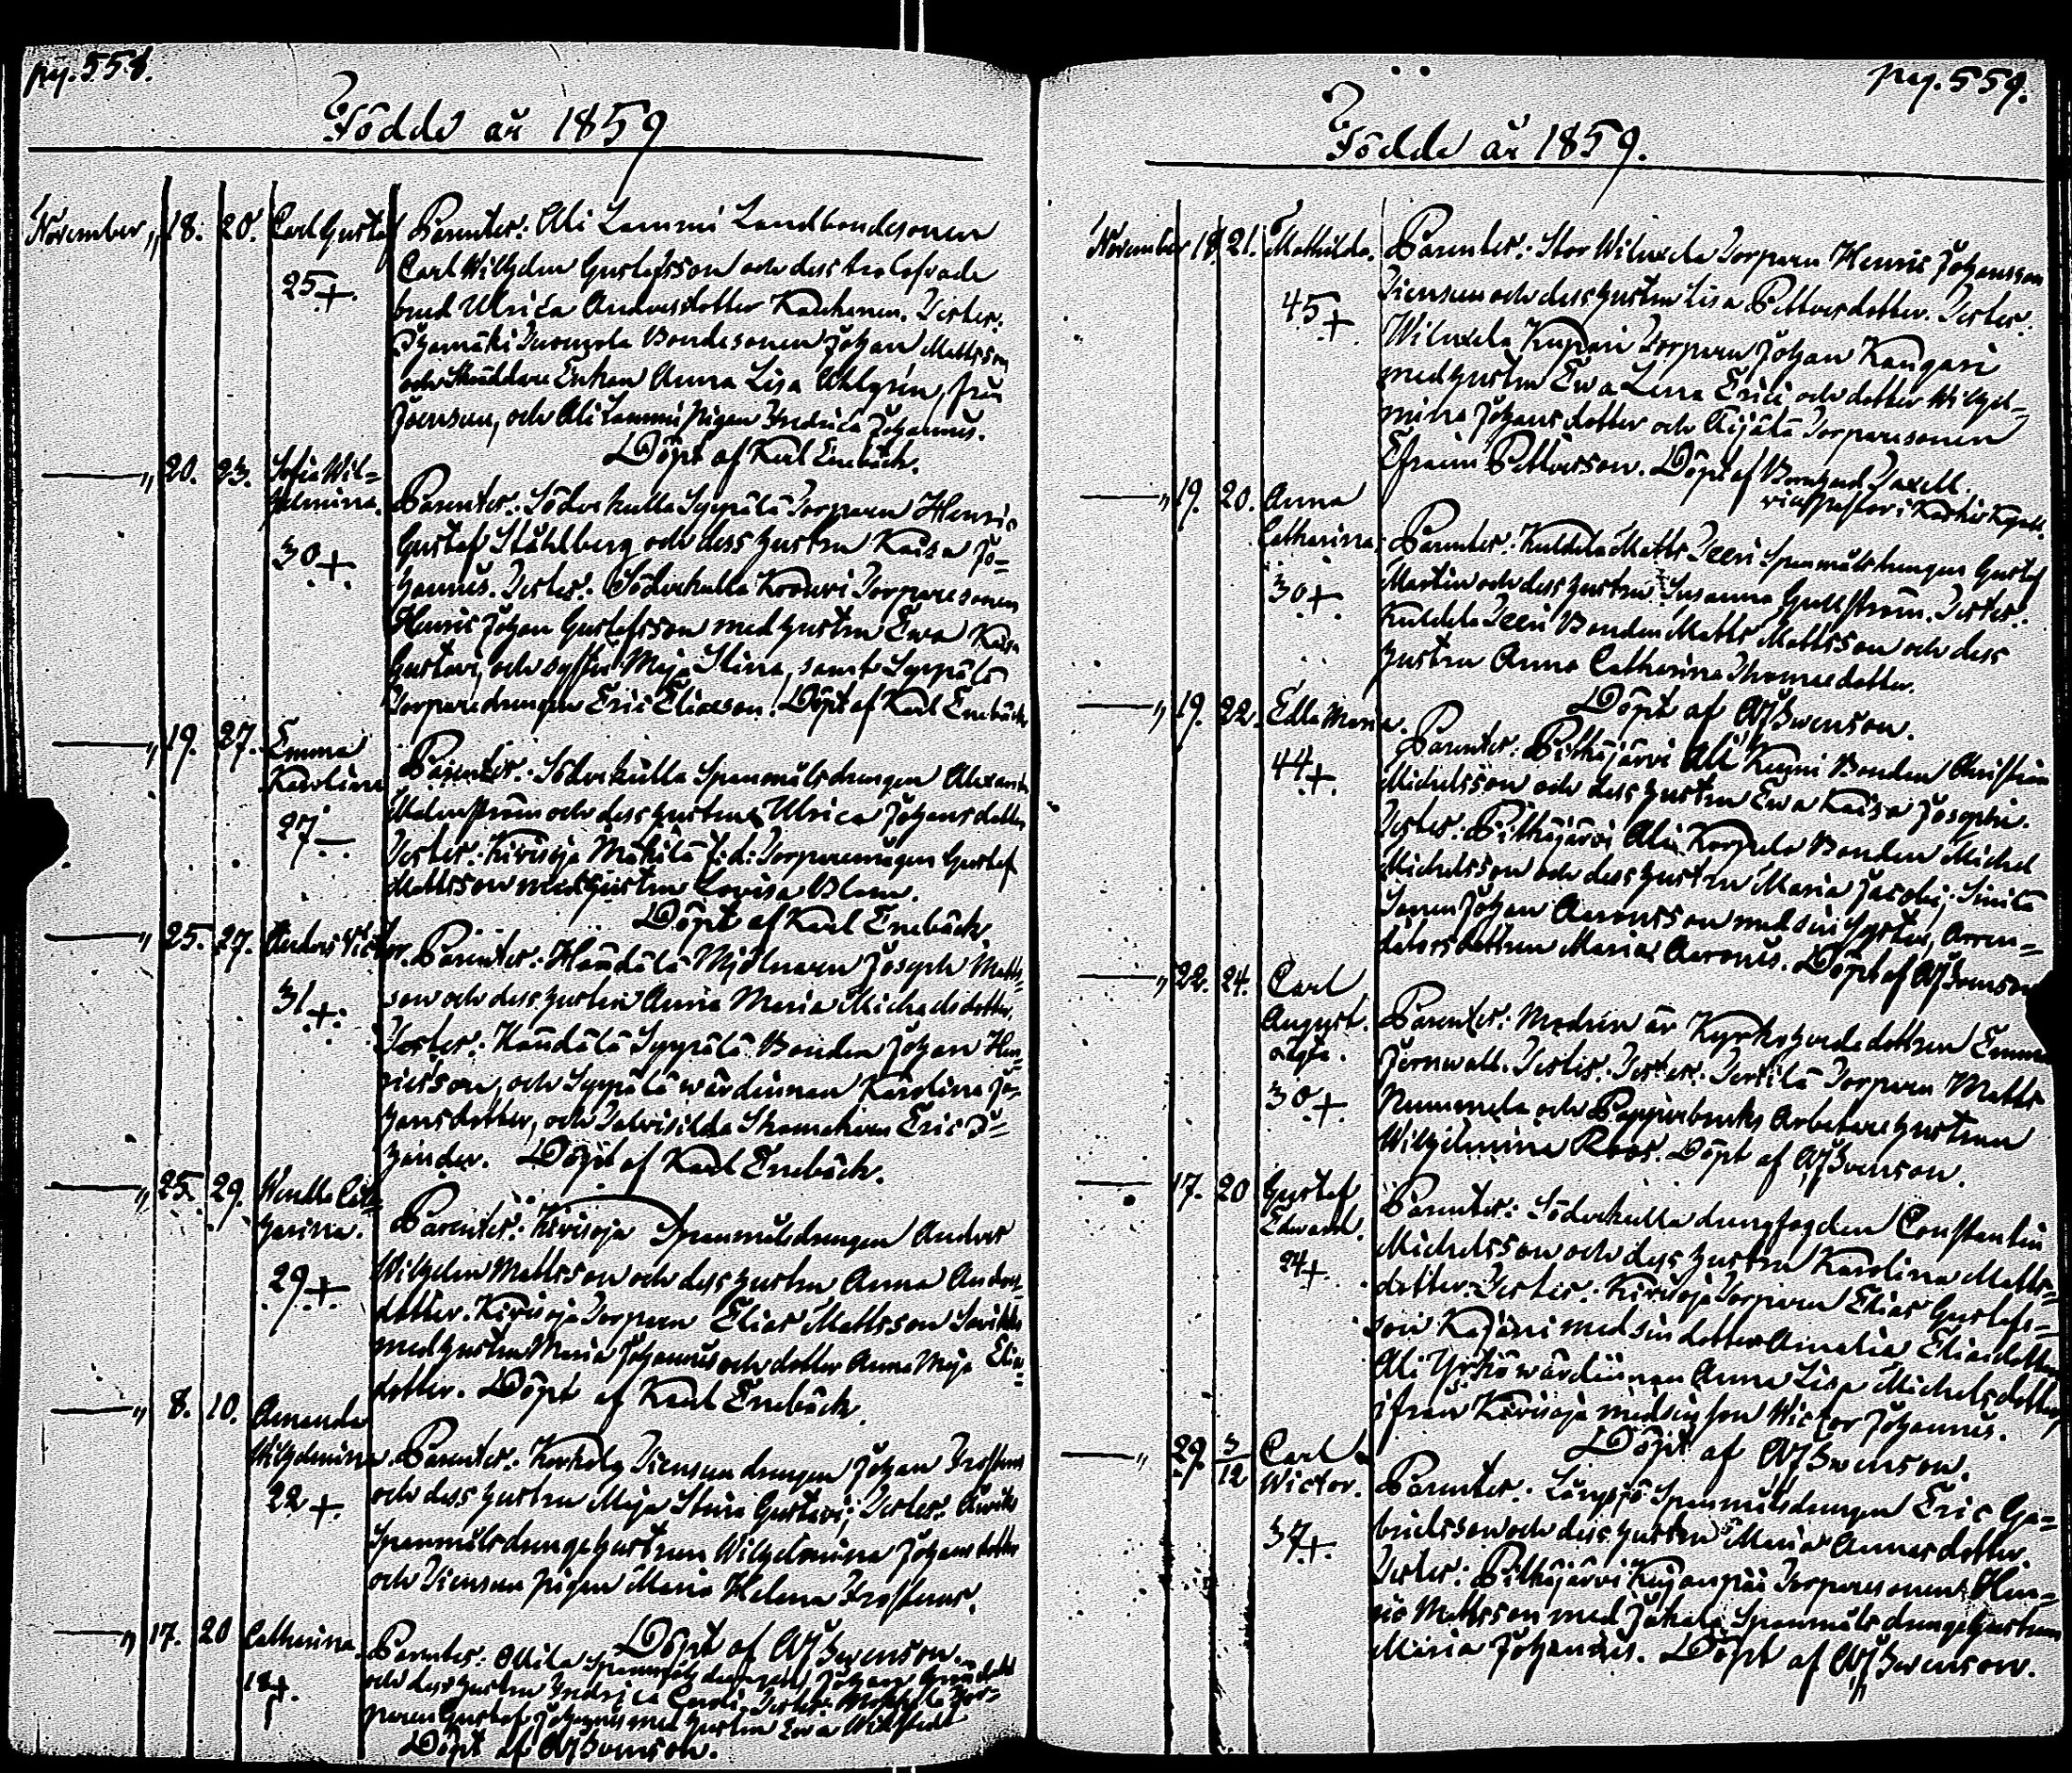 pag. 558.
Födde år 1859
November „ 18. 20. Carl Gustaf Parenter: Ali Lemmi Landbondesonen
Carl Wilhelm Gustafsson och dess trolofvade
25+. brud Ulrica Andersdotter Kakkonen. Testes:
Ihamäki Bondesonen Johan Mattsson
och Skräddare Enkan Anna Lisa Ahlgrén, från
Joensuu, och Ali Lemmi Pigan Fredrica Johannis.
Döpt af Karl Enebäck.
— „ 20. 23. Sofia Wil=
helmina. Parenter: Söderkulla Syppälä Torparen Henric
Gustaf Ståhlberg och dess hustru Kaisa Jo=
30+ hannis. Testes: Söderkulla Krouvi Torparesonen
Henric Johan Gustafsson med hustru Ewa Kaisa
Gustavi, och syster Maja Stina, samt Syppälä
Torparedrengen Eric Eliasson. Döpt af Karl Enebäck
— „ 19. 27. Emma
Karolina Parenter: Söderkulla Spanmålsdrengen Alexander
Malmström och dess hustru Ulrica Johansdotter
27— Testes: Kirisoja Mäkilä f.d. Torparemågen Gustaf
Mattsson med hustru Lovisa Blom.
Döpt af Karl Enebäck.
— „ 25. 27. Anders Victor. Parenter: Haudala Mjölnaren Joseph Matts=
son och dess hustru Anna Maria Michaelsdotter.
31+. Testes: Haudala Syppälä Bonden Johan Hen=
ricsson, och Syppälä wärdinnan Karolina Jo=
hansdotter, och Skomakaren Eric
Döpt af Karl Enebäck.
— „ 25. 29. Wendla Cat=
harina. Parenter: Kirisoja Spanmålsdrengen Anders
Wilhelm Mattsson och dess hustru Anna Anders=
29+ dotter. Kirisoja Torparen Elias Mattsson
med hustru Maria Johannis och dotter Anna Maja Elias=
dotter. Döpt af Karl Enebäck.
— „ 8. 10. Amanda
Wilhelmina. Parenter: Korkela Tiensuu drengen Johan Frostenus
22+. och dess hustru Maja Stina Gustavi; Testes:
Spanmålsdrengehustrun Wilhelmina Johansdotter
och Tiensuu pigan Maria Helena Frostenus.
Döpt af AJ Swenson.
— „ 17. 20 Catharina. Parenter: Ollila Johan
18+. och dess hustru Fredrica Caroli. Testes: Tor=
paren Gustaf Johannis med hustru Ewa Willstedt
Döpt af AJ Swenson.
pag. 559.
Födde år 1859.
November 18. 21. Mathilda. Parenter: Stor Wilaxela Torparen Henric Johansson
Tiensuu och dess hustru Lisa Pettersdotter. Testes:
45+ Wilaxela Kupari Torparen Johan Kangari
med hustru Ewa Lena Erici och dotter Wilhel=
mina Johansdotter och Äijälä Torparesonen
Efraim Pettersson. Döpt af Bernhard Taxell.
vice Pastor i Karkis Kapell.
— „ 19. 20. Anna
Catharina. Parenter: Kuldala Matts Seeri Spanmålsdrengen Gustaf
Martin och dess hustru Susanna Gullström. Testes:
30+ Kuldala Seeri Bonden Matts Mattsson och dess
hustru Anna Catharina Thomasdotter.
Döpt af AJ Swenson.
— „ 19. 22. Edla Maria. Parenter: Pitkäjärvi Ali Knuuni Bonden Christian
44+. Michelsson och dess hustru Ewa Kaisa Josephi.
Testes: Pitkäjärvi Ali Korpela Bonden Michel
Michelsson och dess hustru Maria Jacobi; Simila
Sonen Johan Aronsson med sin Syster, Arren=
datorsdottren Maria Aaronis. Döpt af AJ Swenson
— „ 22. 24. Carl
August. Parenter: Modren är Kyrkoherdedottren Emma
oägta. Jernwall. Testes: Testes: Torparen Matts
30+. Nummela och Pappersbruks Arbetarehustrun
Wilhelmina Roos. Döpt af AJ Swenson.
— „ 17. 20 Gustaf
Edward. Parenter: Söderkulla drengfogden Constantin
24+. Michelsson och dess hustru Karolina Matts=
dotter. Testes: Kirisoja Torparen Elias Gustafs=
son Kajani med sin dotter Amalia Eliasdotter
Ali Yrkö wärdinnan Anna Lisa Michelsdotter
ifrån Kirisoja med sin son Wictor Johannis.
Döpt af AJ Swenson.
— „ 29. 3/12 Carl
Wictor. Parenter: Långsjö Spanmålsdrengen Eric Ga=
37+. brielsson och dess hustru Maria Annasdotter.
Testes: Pitkäjärvi Kujanpää Torparesonen Hen=
ric Mattsson med Jokela Spanmålsdrengehustrun
Maria Johannis. Döpt af AJ Swenson.